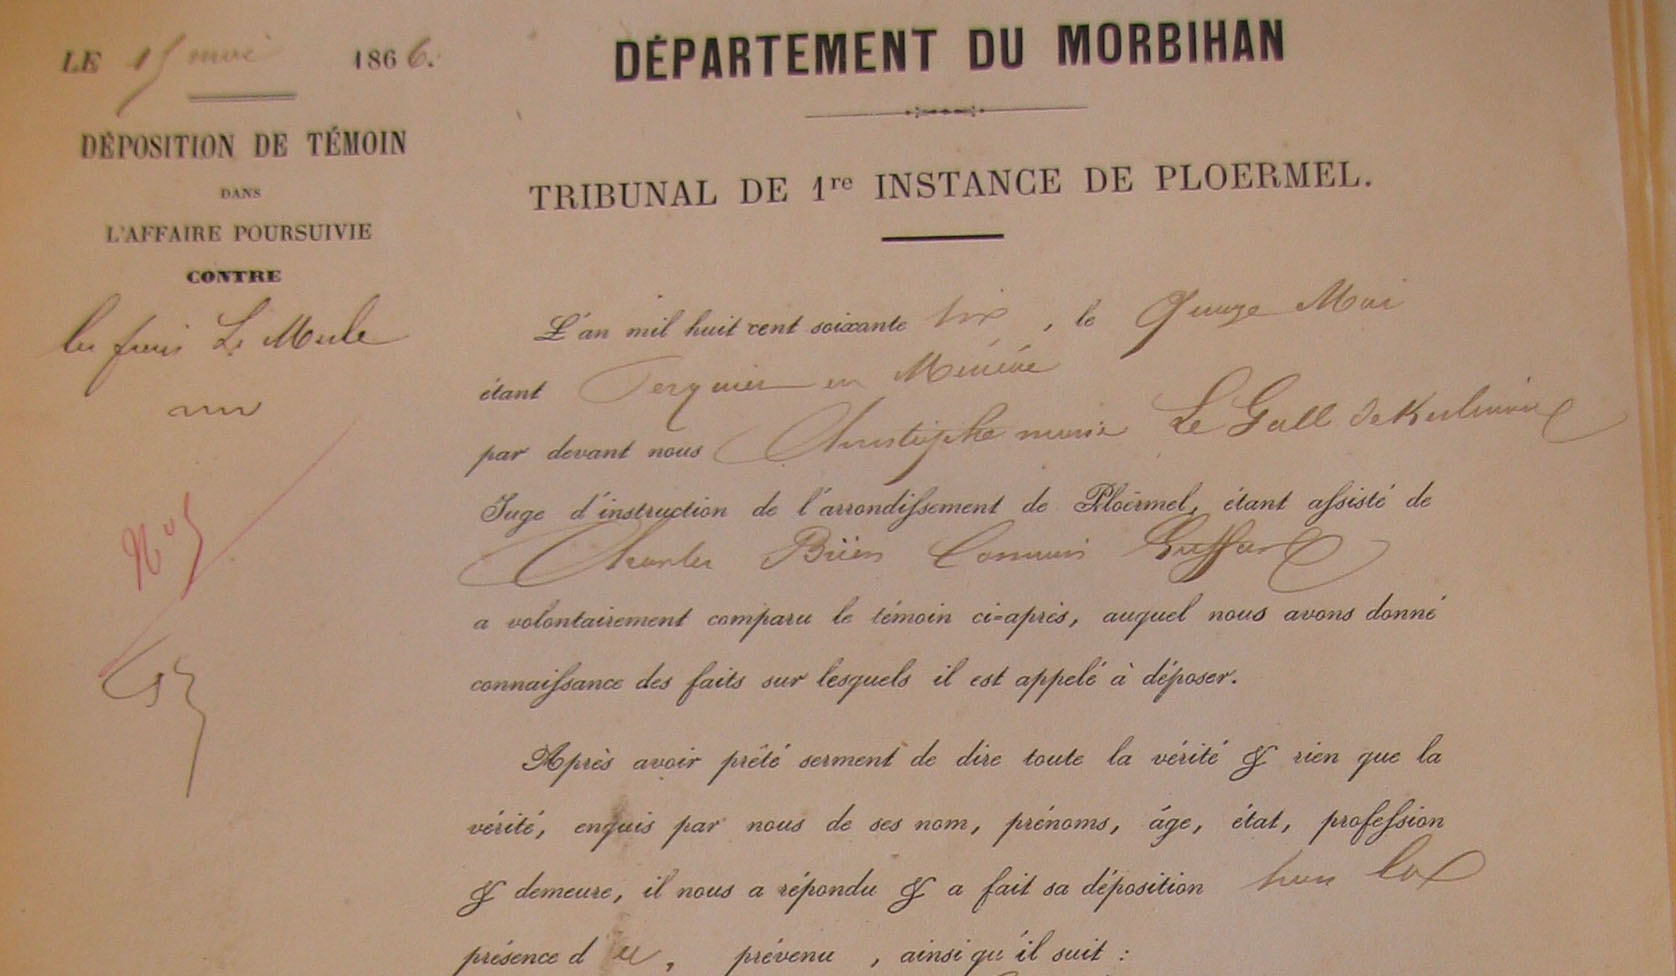 LE 15 mai 1866.
DÉPOSITION DE TÉMOIN
DANS
L'AFFAIRE POURSUIVIE
CONTRE
les frères Le Merle
N° 5
DÉPARTEMENT DU MORBIHAN
TRIBUNAL DE 1re INSTANCE DE PLOERMEL.
L'an mil huit cent soixante six, le Quinze Mai
étant en Ménéac
par devant nous Christophe marie Le Gall de Kerlinou
Juge d'instruction de l'arrondissement de Ploërmel, étant assisté de
Charles Commis Greffier
a volontairement comparu le témoin ci=après, auquel nous avons donné
connaissance des faits sur lesquels il est appelé à déposer.
Après avoir prêté serment de dire toute la vérité & rien que la
vérité, enquis par nous de ses nom, prénoms, âge, état, profession
& demeure, il nous a répondu & a fait sa déposition hors la
présence d u, prévenu, ainsi qu'il suit :